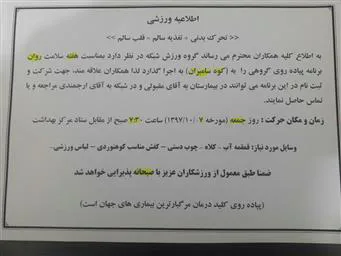 اطلاعیه ورزشی
<< تحرک بدنی - تغذیه سالم - قلب سالم >>
به اطلاع کلیه همکاران محترم می رساند گروه ورزش شبکه در نظر دارد بمناسبت هفته سلامت روان
برنامه پیاده روی گروهی را به (کوه سامبران) به اجرا گذارد لذا همکاران علاقه مند، جهت شرکت و
ثبت نام در این برنامه می توانند در بیمارستان به آقای مقبولی و در شبکه به آقای ارجمندی مراجعه و یا
تماس حاصل نمایند.
زمان و مکان حرکت : روز جمعه (مورخه ۱۳۹۷/۱۰/۰۷) ساعت ۷:۳۰ صبح از مقابل ستاد مرکز بهداشت
وسایل مورد نیاز: قمقمه آب - کلاه - چوب دستی - کفش مناسب کوهنوردی - لباس ورزشی-
ضمنا طبق معمول از ورزشکاران عزیز با صبحانه پذیرایی خواهد شد
(پیاده روی کلید درمان مرگبارترین بیماری های جهان است)